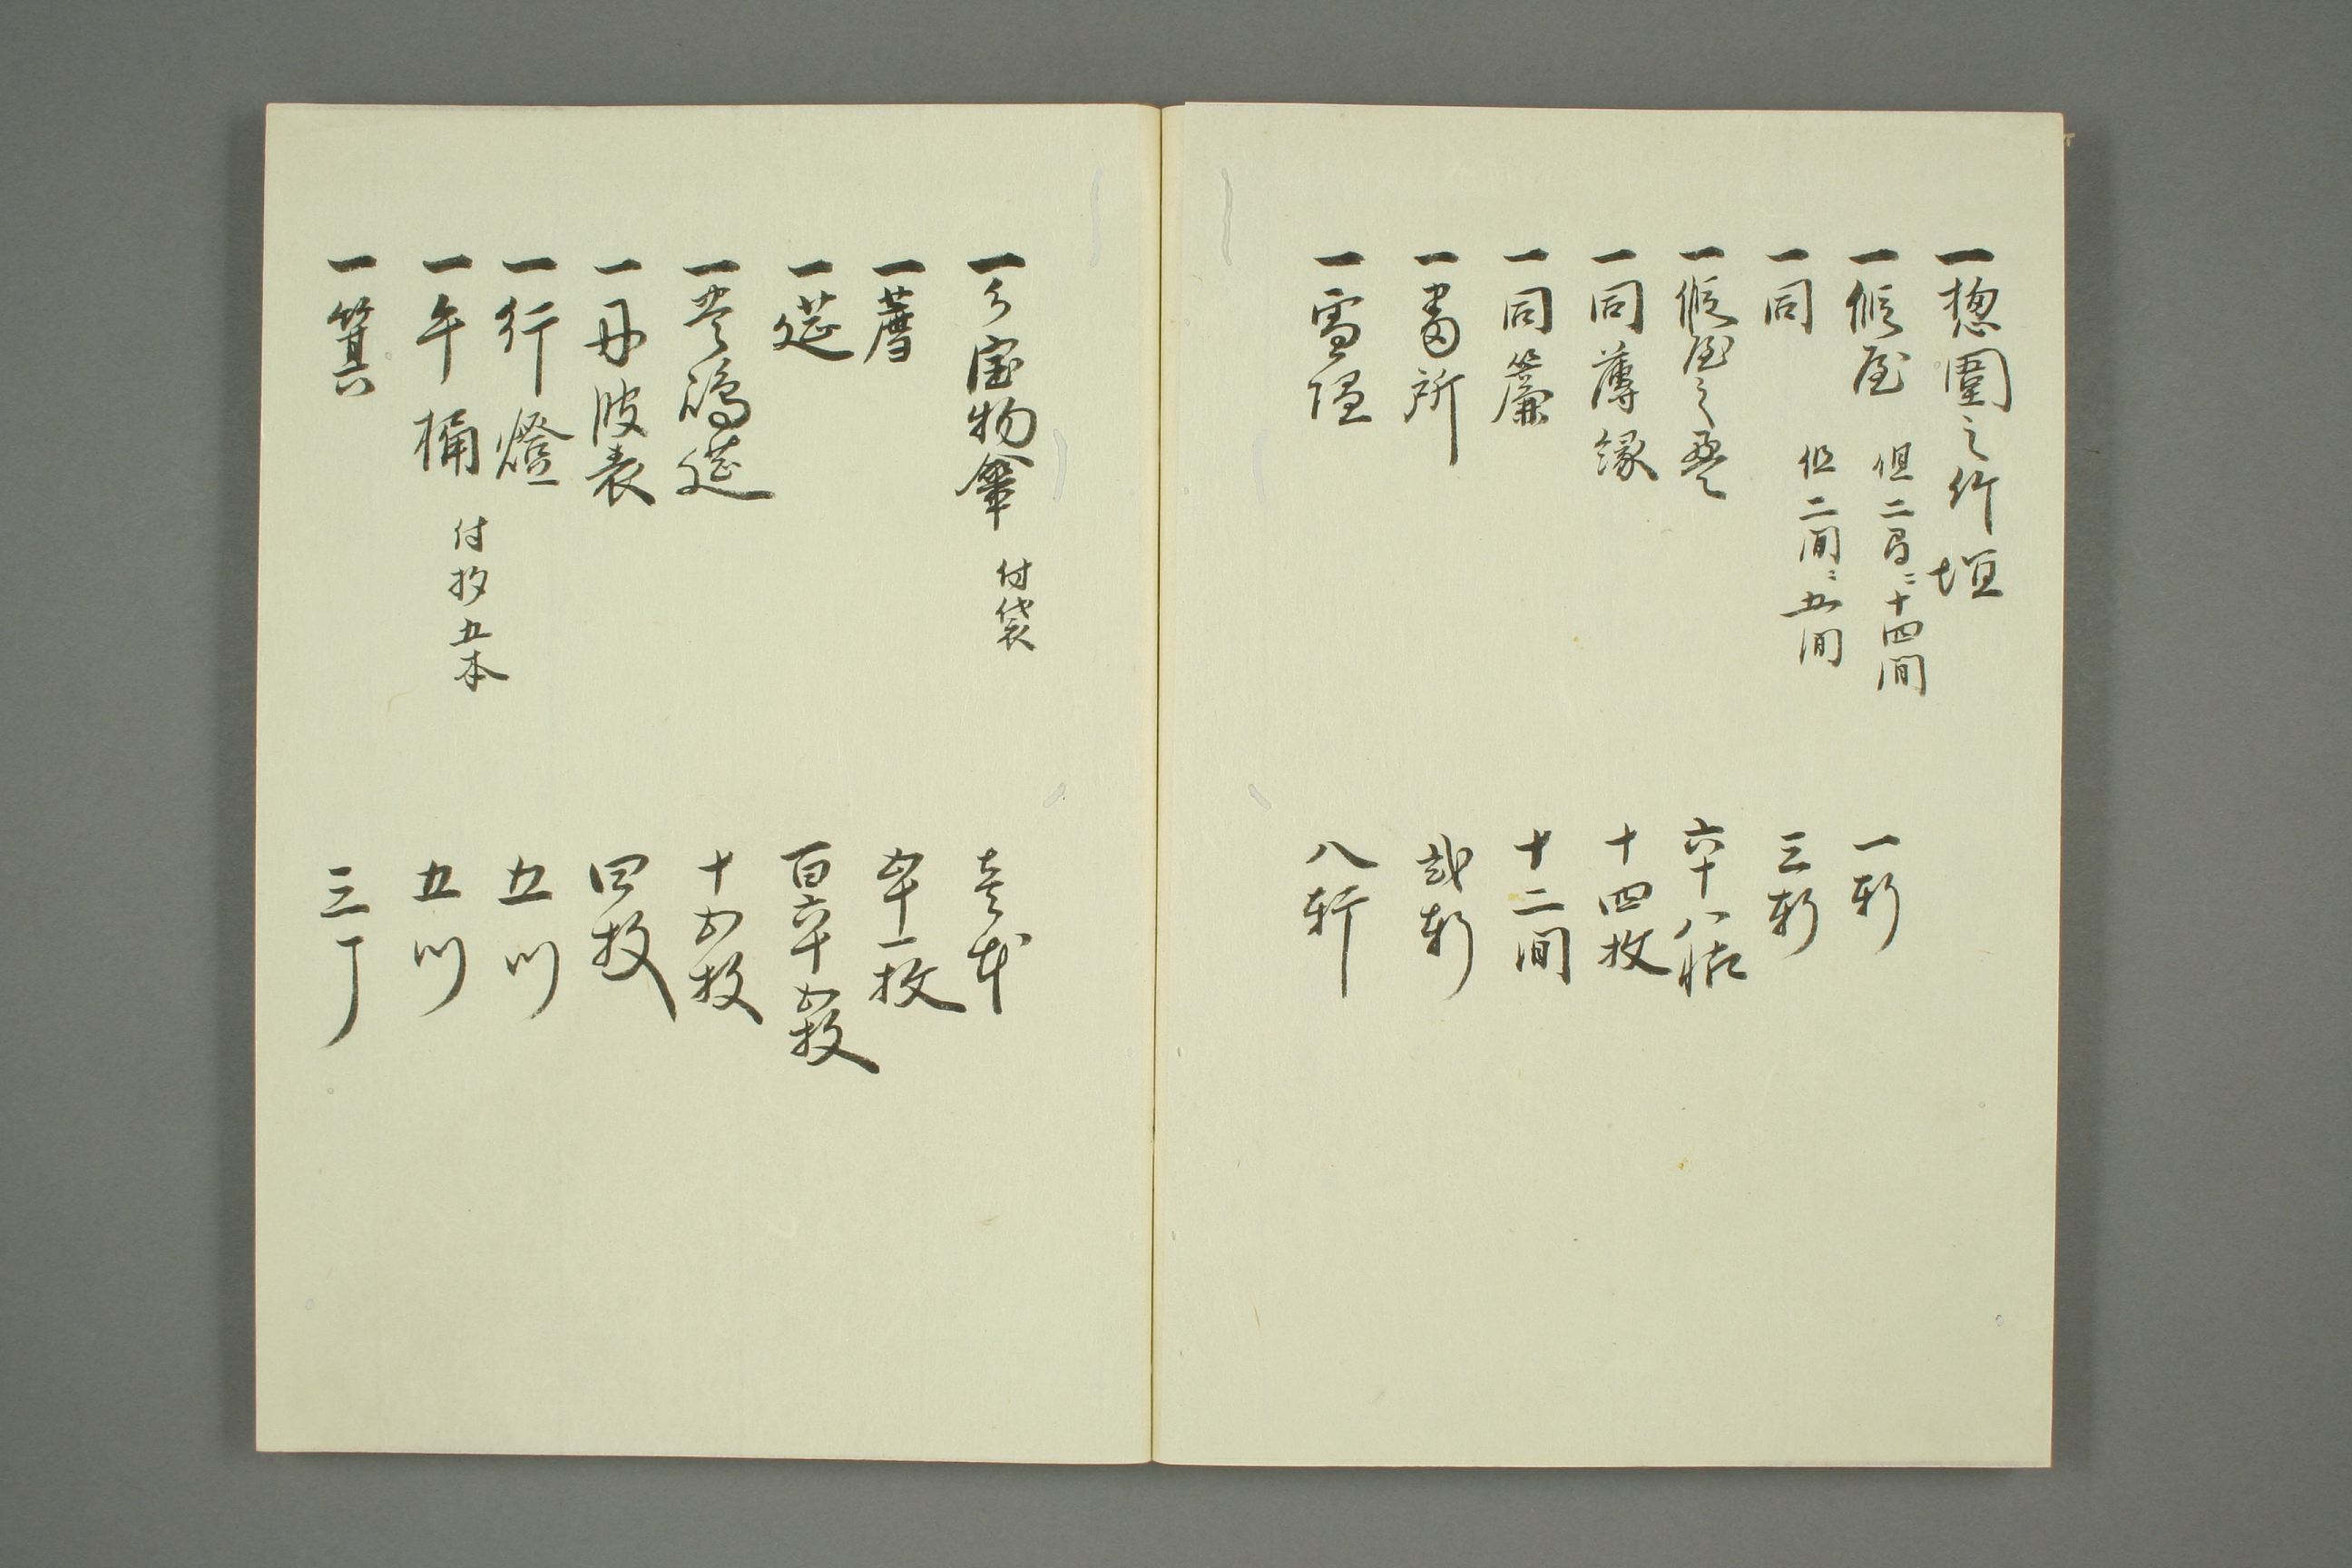 一惣圍之竹垣
一假屋 但二間ニ十四間 一軒
一同 但二間ニ五間 三軒
一假屋之疊 六十八帖
一同薄縁 十四枚
一同簾 十二間
一番所 貳軒
一雪隠 八軒
一御宝物傘 付袋 壱本
一薦 五十一枚
一莚 百六十五枚
一 莚 十五枚
一丹波表 四枚
一行燈 五ツ
一手桶 付杓五本 五ツ
一箕 三丁